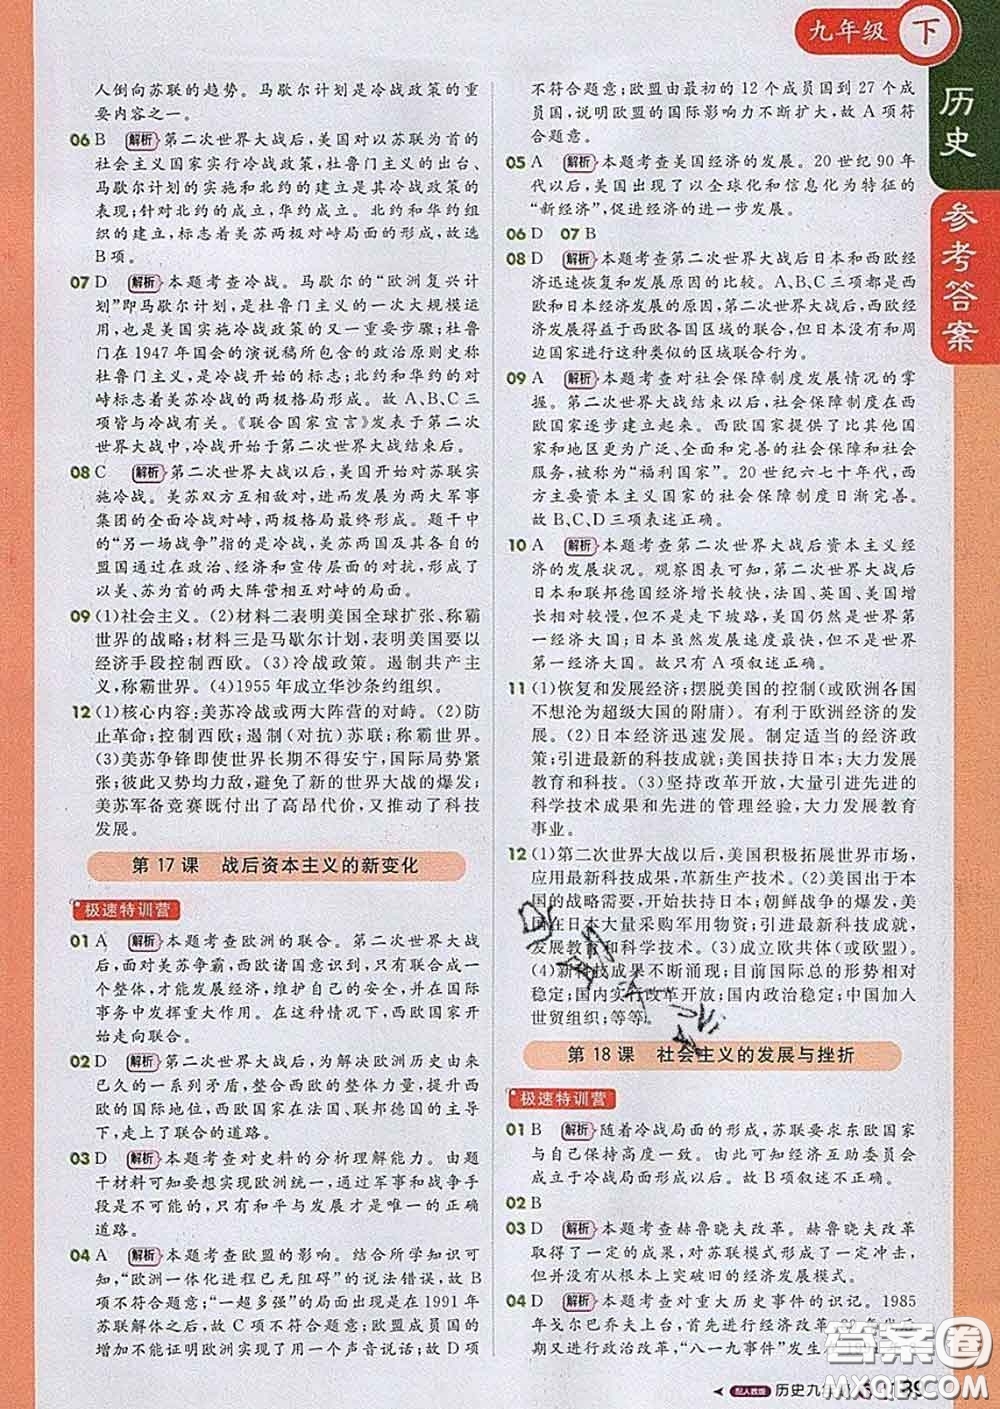 九年级
下
历史
参考答案
人倒向苏联的趋势。马歇尔计划是冷战政策的重
要内容之一。
06 B 解析 第二次世界大战后,美国对以苏联为首的
社会主义国家实行冷战政策,杜鲁门主义的出台、
马歇尔计划的实施和北约的建立是其冷战政策的
表现;针对北约的成立,华约成立。北约和华约组
织的建立,标志着美苏两极对峙局面的形成,故选
B项。
07 D 解析 本题考查冷战。马歇尔的“欧洲复兴计
划”即马歇尔计划,是杜鲁门主义的一次大规模运
用,也是美国实施冷战政策的又一重要步骤;杜鲁
门在1947年国会的演说稿所包含的政治原则史称
杜鲁门主义,是冷战开始的标志;北约和华约的对
峙标志着美苏冷战的两极格局形成。故A、B、C三
项皆与冷战有关。《联合国家宣言》发表于第二次
世界大战中,冷战开始于第二次世界大战结束后。
08 C 解析 第二次世界大战以后,美国开始对苏联实
施冷战。美苏双方互相敌对,进而发展为两大军事
集团的全面冷战对峙,两极格局最终形成。题干中
的“另一场战争”指的是冷战,美苏两国及其各自的
盟国通过在政治、经济和宣传层面的对抗,形成了
以美、苏为首的两大阵营相互对峙的局面。
09 (1)社会主义。(2)材料二表明美国全球扩张、称霸
世界的战略;材料三是马歇尔计划,表明美国要以
经济手段控制西欧。(3)冷战政策。遏制共产主
义,称霸世界。(4)1955年成立华沙条约组织。
12 (1)核心内容:美苏冷战或两大阵营的对峙。(2)防
止革命;控制西欧;遏制(对抗)苏联;称霸世界。
(3)美苏争锋即使世界长期不得安宁,国际局势紧
张;彼此又势均力敌,避免了新的世界大战的爆发;
美苏军备竞赛既付出了高昂代价,又推动了科技
发展。
第17课 战后资本主义的新变化
极速特训营
01 A 解析 本题考查欧洲的联合。第二次世界大战
后,面对美苏争霸,西欧诸国意识到,只有联合成一
个整体,才能发展经济,维护自己的安全,并在国际
事务中发挥重大作用。在这种背景下,西欧国家开
始走向联合。
02 D 解析 第二次世界大战后,为解决欧洲历史由来
已久的一系列矛盾,整合西欧的整体力量,提升西
欧的国际地位,西欧国家在法国、联邦德国的主导
下,走上了联合的道路。
03 D 解析 本题考查对史料的分析理解能力。由题
干材料可知要想实现欧洲统一,通过军事和战争手
段是不可能的,只有和平与发展才是唯一的正确
道路。
04 A 解析 本题考查欧盟的影响。结合所学知识可
知,“欧洲一体化进程已无阻碍”的说法错误,故B
项不符合题意;“一超多强”的首次出现是在1991年
苏联解体之后,故C项不符合题意;欧盟成员国的
增加不能证明欧洲实现了用一个声音说话;故D项
不符合题意;欧盟由最初的12个成员国到27个成
员国,说明欧盟的国际影响力不断扩大,故A项符
合题意。
05 A 解析 本题考查美国经济的发展。20世纪90年
代以后,美国出现了以全球化和信息化为特征的
“新经济”,促进经济的进一步发展。
06 D 07 B
08 D 解析 本题考查第二次世界大战后日本和西欧经
济迅速恢复和发展原因的比较。A、B、C三项都是西
欧和日本经济发展的原因,第二次世界大战后,西欧经
济发展得益于西欧各国区域的联合,但日本没有和周
边国家开始这种类似的区域联合行为。
09 A 解析 本题考查对社会保障制度发展情况的掌
握。第二次世界大战结束以后,社会保障制度在西
欧国家逐步建立起来。西欧国家提供了比其他国
家和地区更为广泛、全面和完善的社会保障和社会
服务,被称为“福利国家”。20世纪六七十年代,西
方主要资本主义国家的社会保障制度日渐完善。
故B、C、D三项表述正确。
10 A 解析 本题考查第二次世界大战后资本主义经
济的发展状况。观察图表可知,第二次世界大战后
日本和联邦德国经济增长较快,法国、英国、美国增
长相对较慢,但不是走下坡路,美国仍然是世界第
一经济大国;日本虽然发展速度最快,但不是世界
第一经济大国。故只有A项叙述正确。
11 (1)恢复和发展经济;摆脱美国的控制(或欧洲各国
不想沦为超级大国的附庸)。有利于欧洲经济的发
展。(2)日本经济迅速发展。制定适当的经济政
策;引进最新的科技成就;美国扶持日本;大力发展
教育和科技。(3)坚持改革开放,大力引进先进的
科学技术成果和先进的管理经验,大力发展教育
事业。
12 (1)第二次世界大战以后,美国积极拓展世界市场,
应用最新科技成果,革新生产技术。(2)美国出于本
国的战略需要,开始扶持日本;朝鲜战争的爆发,美
国在日本大量采购军用物资;引进最新科技成就,
发展教育和科学技术。(3)成立欧共体(或欧盟)。
(4)新科技成果不断涌现;目前国际总的形势相对
稳定;国内实行改革开放;国内政治稳定;中国加入
世贸组织;等等。
第18课 社会主义的发展与挫折
极速特训营
01 B 解析 随着冷战局面的形成,苏联要求东欧国家
与自己保持高度一致。由此可知经济互助委员会
成立于冷战局面形成以后。故B项叙述不正确。
02 B
03 D 解析 本题考查赫鲁晓夫改革。赫鲁晓夫改革
取得了一定的成果,对苏联模式形成了一定冲击,
但并没有从根本上突破旧的经济发展模式。
04 D 解析 本题考查对重大历史事件的识记。1985
年戈尔巴乔夫上台,首先进行经济改革
期又进行政治改革,“八一九事件”发生
配人教版 历史九年
39
答案圈
MXQE.COM